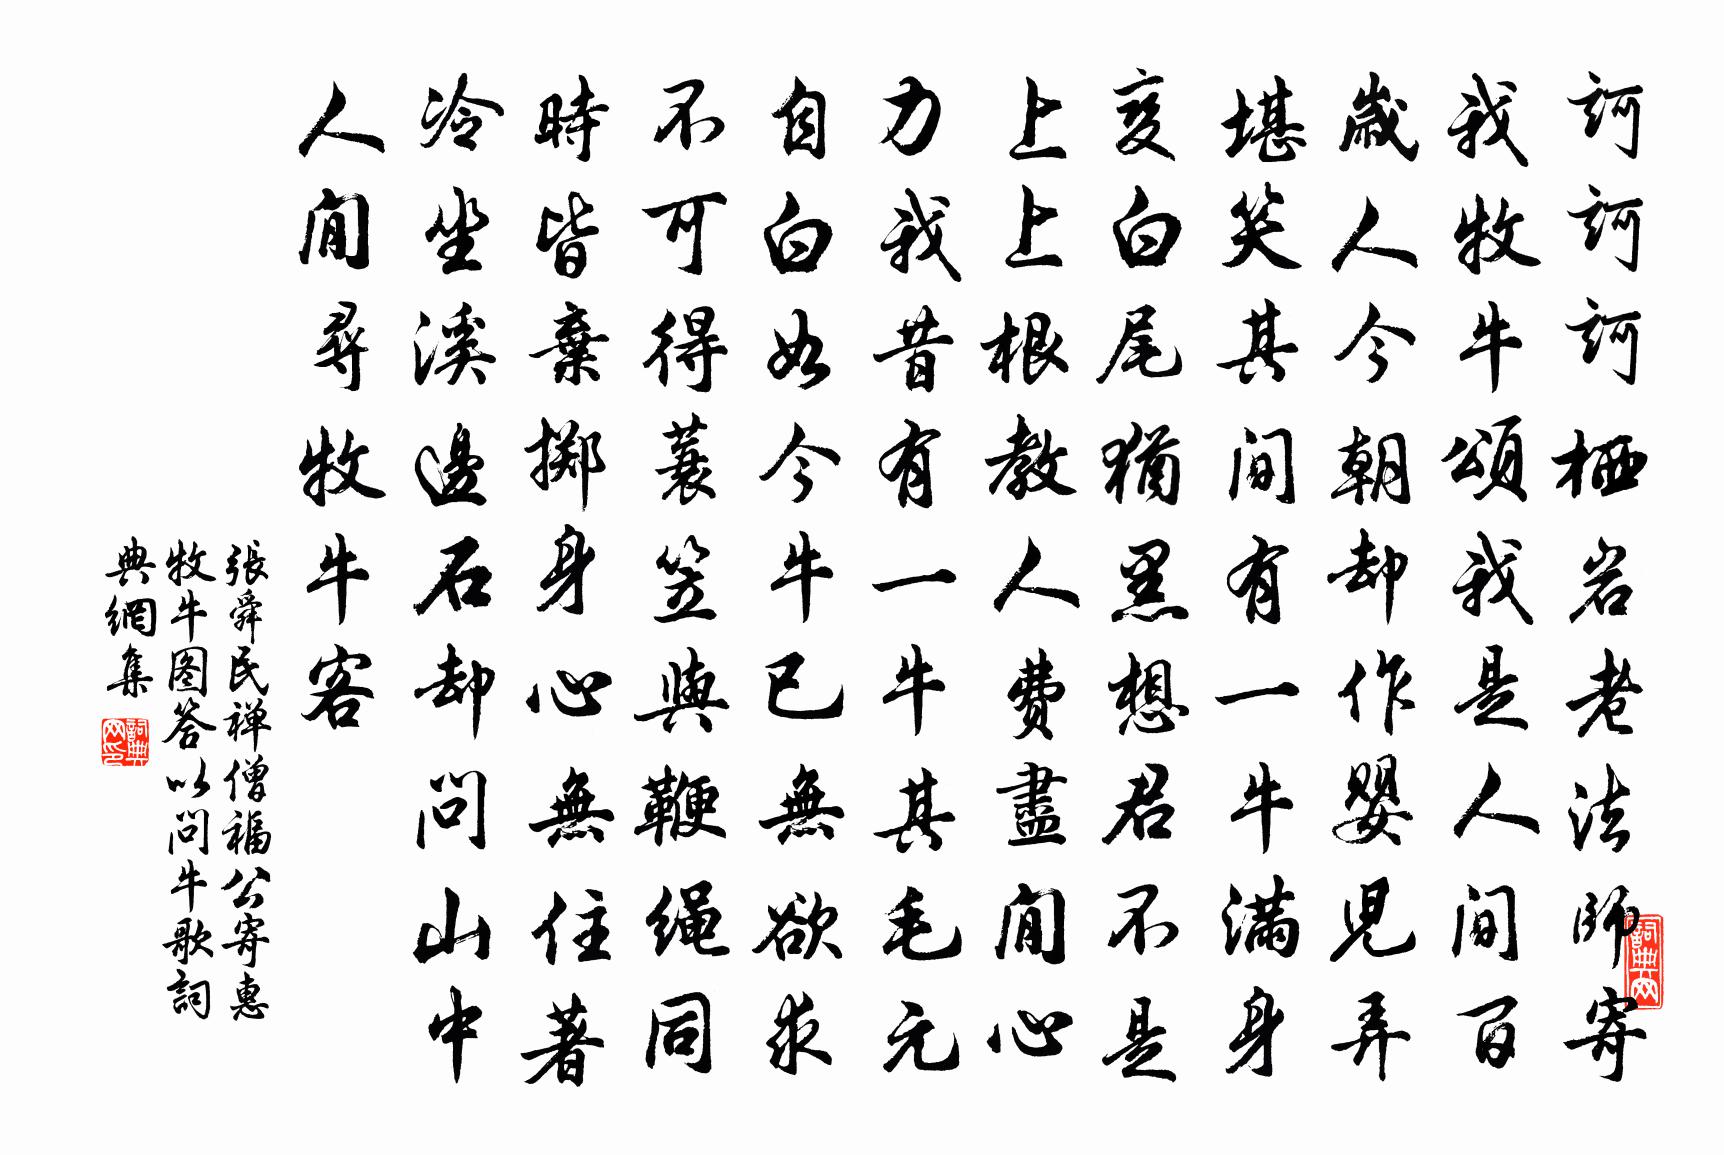 訶訶訶栖岩老法師寄
我牧牛頌我是人間百
歲人今朝却作嬰児弄
堪笑其間有一牛满身
变白尾猶黑想君不是
上上根教人費盡閒心
力我昔有一牛其毛元
自白如今牛已無欲求
不可得蓑笠與鞭绳同
時皆棄掷身心無住著
冷坐溪邊石却问山中
人閒尋牧牛客
張舜民禅僧福公寄惠
牧牛图答以问牛歌詞
典網集
詞典网
詞典网印